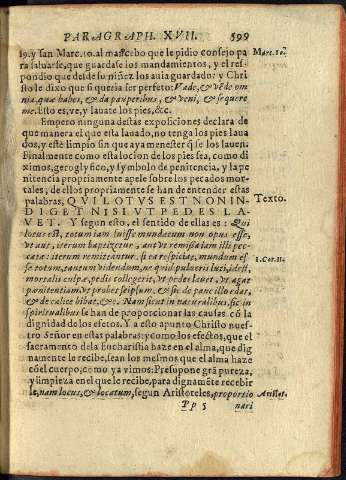 PARAGRAPH. XVII. 599
19. y san Marc. 10. al mancebo que le pidio consejo pa
ra saluarse, que guardasse los mandamientos, y el res-
pondio que desde su niñez los auia guardado: y Chri
sto le dixo que si queria ser perfeto: Vade, & vēde om
nia, quæ habes, & da pauperibus, & veni, & sequere
me. Esto es, ve, y lauate los pies, &c.
Empero ninguna destas exposiciones declara de
que manera el que esta lauado, no tenga los pies laua
dos, y esté limpio sin que aya menester q̃ se los lauen.
Finalmente como esta locion de los pies sea, como di
ximos, geroglyfico, y symbolo de penitencia, y la pe
nitencia propriamente apele sobre los pecados mor-
tales, de ellos propriamente se han de entender estas
palabras, QVI LOTVS EST NON IN-
DIGET NISI VT PEDES LA-
VET. Y segun esto, el sentido de ellas es: Qui
locus est, totum iam fuisse mundatum non opus esse,
vt aut, iterum baptizetur, aut vt remissa iam illi pec-
cata: iterum remittantur, si ea respicias, mundum es
se totum, tantum videndum, ne quid pulueris luti, id est,
mortalis culpæ, pedis collegerit, vt pedes lauet, vt agat
pœnitentiam, vt probet seipsum, & sic de pane illo edat,
& de calice bibat, &c. Nam sicut in naturalibus, sic in
spiritualibus se han de proporcionar las causas cõ la
dignidad de los efetos. Y a esto apunto Christo nues-
tro Señor en estas palabras: y como los efectos, que el
sacramento de la Eucharistia haze en el alma, que dig
namente le recibe, sean los mesmos que el alma haze
cõ el cuerpo, como ya vimos: Presupone grã pureza,
y limpieza en el que le recibe, para dignamēte recebir
le, nam locus, & locatum, segun Aristoteles, proportio
Pp 5 nari
Marc. 10.
Texto.
1. Cor. 11.
Aristot.